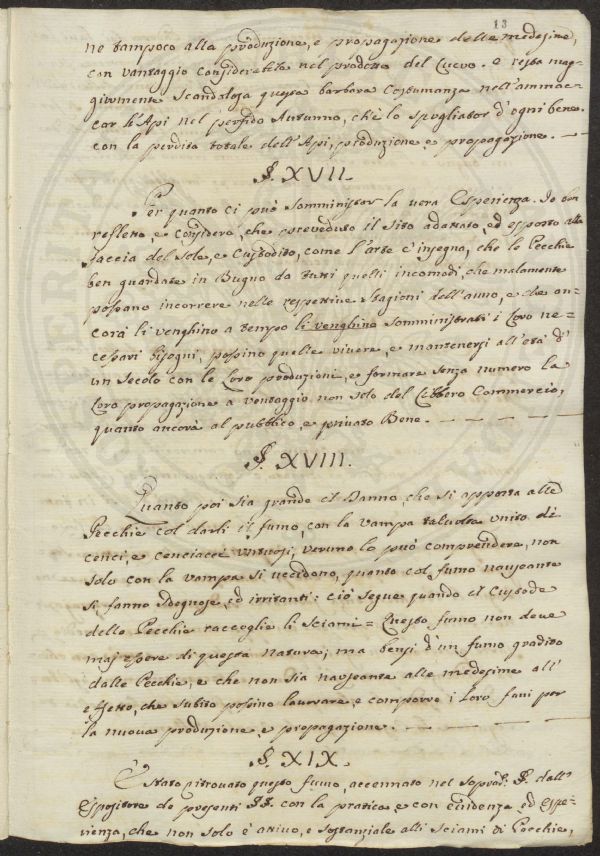 13
ne tampoco alla produzione, e propagazione delle medesime,
con vantaggio considerabile nel prodotto del Cuevo. e resta mag-
giormente scandolosa questa barbara costumanza nell'ammac-
car l'Api nel perfido Autunno, ch'è lo spogliator d'ogni bene
con la perdita totale dell'Api, produzione e propagazione. —
§. XVII.
Per quanto ci può somministrar la vera Esperienza. Io ben
refletto, e considero, che preveduto il sito adattato, ed esposto alla
faccia del Sole, e Custodito, come l'arte c'insegna, che le Pecchie
ben guardate in Bugno da tutti quelli incomodi, che malamente
possano incorrere nelle respettive stagioni dell'anno, e che an-
cora li venghino a tempo li venghino somministrati i Loro ne-
cessari bisogni, possino quelle vivere, e mantenersi all'età d'
un Secolo con le Loro produzioni, e formare senza numero la
Loro propagazione a vantaggio non solo del Libbero Commercio,
quanto ancora al pubblico, e privato Bene. — — — — —
§. XVIII.
Quanto poi sia grande il Danno, che si apporta alle
Pecchie col darli il fumo, con la vampa talvolta unito di
cenci, e cenciacci untuosi, veruno lo può comprendere, non
solo con la vampa si uccidono, quanto col fumo nauseante
si fanno sdegnose, ed irritanti: ciò segue quando il Custode
delle Pecchie raccoglie li sciami = Questo fumo non deve
mai essere di questa natura; ma bensì d'un fumo gradito
dalle Pecchie, e che non sia nauseante alle medesime all'
effetto, che subito possino lavorare, e comporre i Loro favi per
la nuova produzione, e propagazione. — — — — —
§. XIX.
È stato ritrovato questo fumo, accennato nel soprad. §. dall'
Espositore de presenti §§. con la pratica, e con evidenza, ed espe-
rienza, che non solo è attivo, e sostanziale alli Sciami di Pecchie,